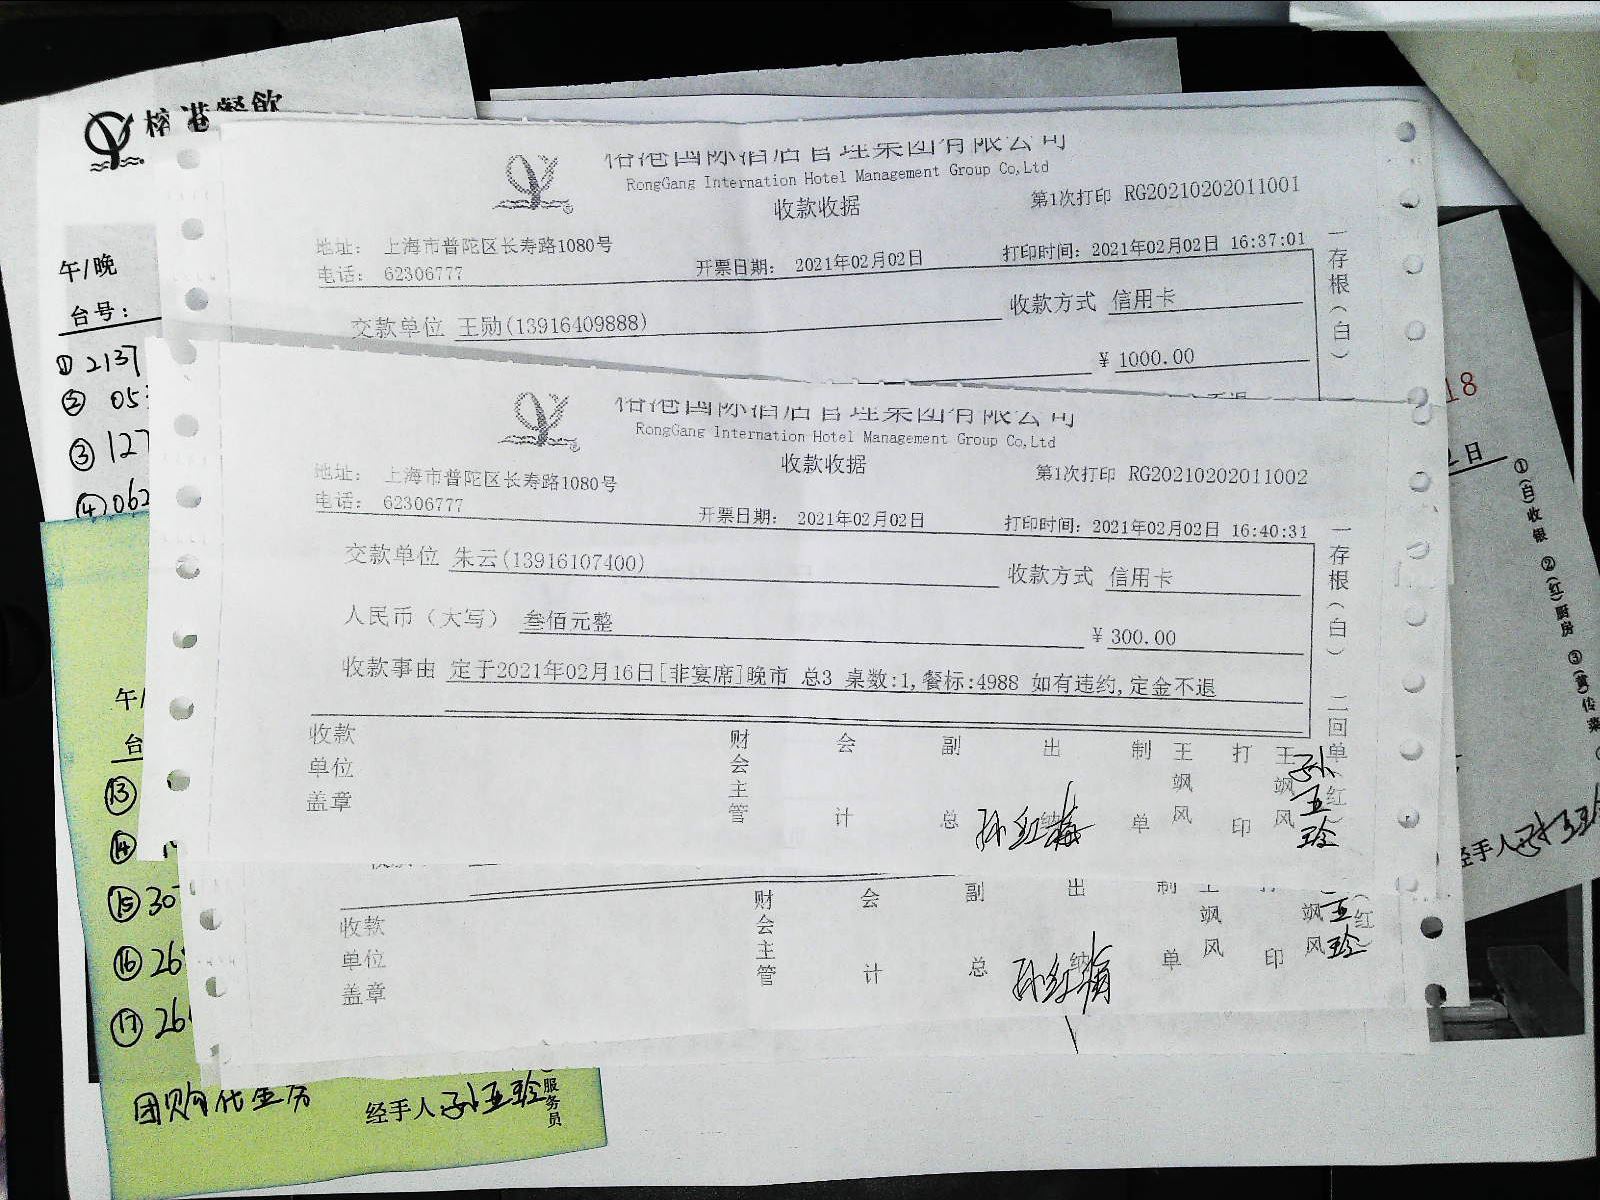 榕港餐飲
午/晚
台号：
① 2137
② 05
③ 127
④ 062
榕港国际酒店管理集团有限公司
RongGang Internation Hotel Management Group Co,Ltd
收款收据
第1次打印 RG20210202011001
地址： 上海市普陀区长寿路1080号
电话： 62306777
开票日期： 2021年02月02日
打印时间：2021年02月02日 16:37:01
交款单位 王勋(13916409888)
收款方式 信用卡
¥ 1000.00
一存根（白）
榕港国际酒店管理集团有限公司
RongGang Internation Hotel Management Group Co,Ltd
收款收据
第1次打印 RG20210202011002
地址： 上海市普陀区长寿路1080号
电话： 62306777
开票日期： 2021年02月02日
打印时间：2021年02月02日 16:40:31
交款单位 朱云(13916107400)
收款方式 信用卡
人民币（大写） 叁佰元整
¥ 300.00
收款事由 定于2021年02月16日[非宴席]晚市 总3 桌数:1,餐标:4988 如有违约,定金不退
一存根（白） 二回单（红）
收款单位盖章
财会主管
会计
副总
出纳
孙红梅
制单
王飒风
打印
王飒风
孙玉玲
收款单位盖章
财会主管
会计
副总
出纳
孙红梅
制单
飒风
印
飒风
玉玲
（红）
18
日
①(白)收银 ②(红)厨房 ③(黄)传菜
经手人
午/
台
⑬
⑭
⑮ 30
⑯ 26
⑰ 26
团购代金券
经手人 孙玉玲
服务员